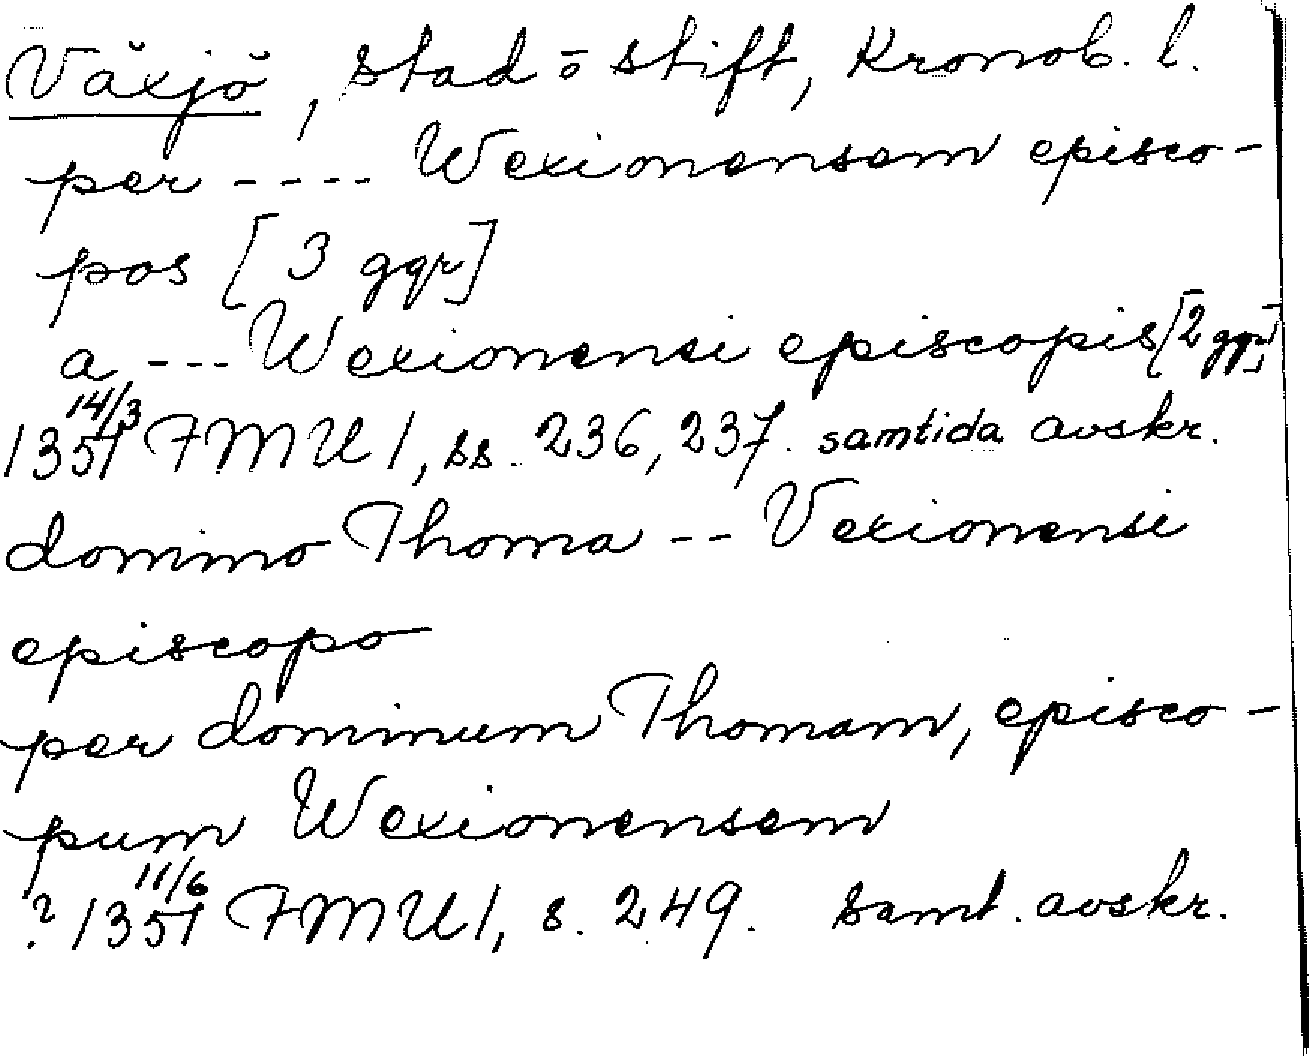 Växjö, stad ō stift, Kronob. l.
per ---- Wexionensem episco-
pos [3 ggr]
a --- Wexionensi episcopis [2 ggr]
14/3
1351 FMU 1, ss. 236, 237. samtida avskr.
domino Thoma -- Vexionensi
episcopo
per dominum Thomam, episco-
pum Wexionensem
11/6
? 1351 FMU 1, s. 249. samt. avskr.